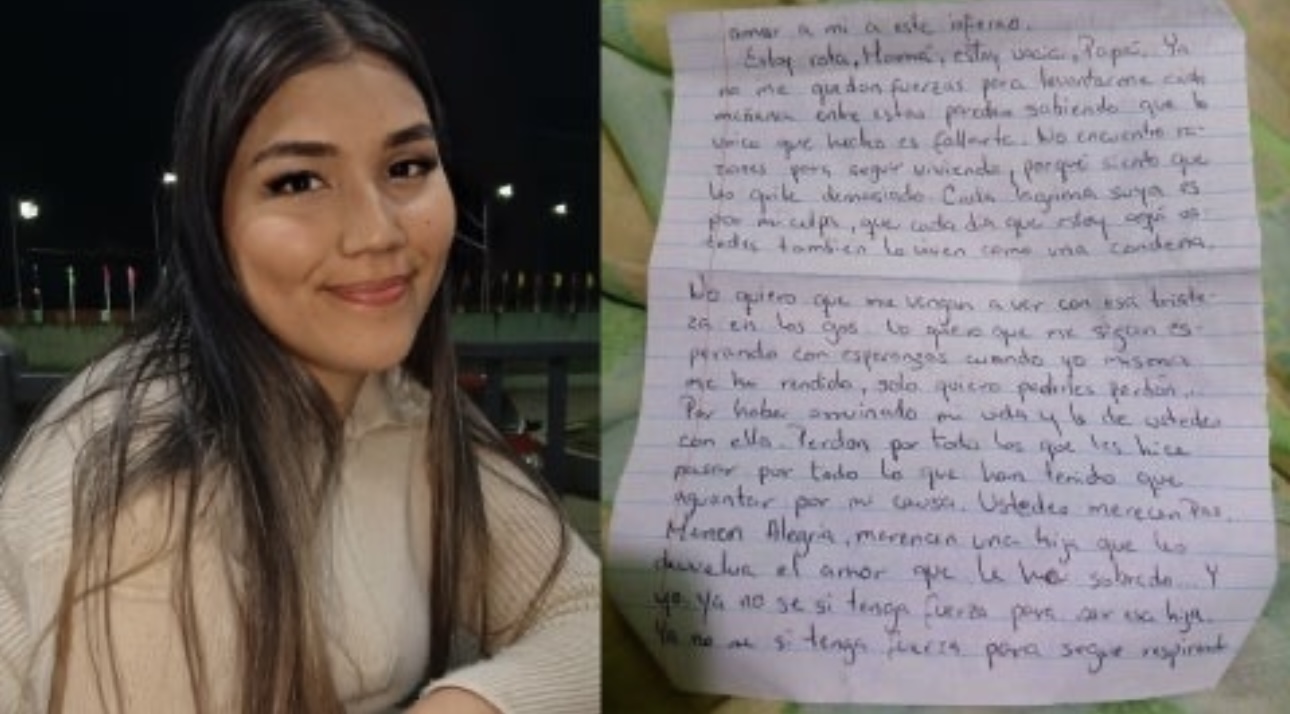 amor a mi a este infierno.
Estoy rota, Mamá, estoy vacia, Papá. Ya
no me quedan fuerzas para levantarme cada
mañana entre estas paredes sabiendo que lo
unico que hecho es fallarte. No encuentro ra-
zones para seguir viviendo, porque siento que
les quite demasiado. Cada lagrima suya es
por mi culpa, que cada dia que estoy aqui us-
tedes tambien lo viven como una condena.
No quiero que me vengan a ver con esa triste-
za en los ojos. No quiero que me sigan es-
perando con esperanzas cuando yo misma
me he rendido, solo quiero pedirles perdon...
Por haber arruinado mi vida y la de ustedes
con ella. Perdon por todo los que les hice
pasar por todo lo que han tenido que
aguantar por mi causa. Ustedes merecen Paz..
Alegria, merecen una hija que les
devuelva el amor que le ha sobrado.. Y
yo ya no se si tenga fuerza para ser esa hija.
Ya no se si tenga fuerza para segue respirand